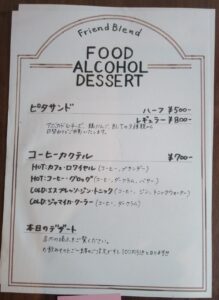 Friend Blend
FOOD
ALCOHOL
DESSERT
ピタサンド ハーフ ¥500-
レギュラー ¥800-
コーヒーカクテル ¥700-
HOT:カフェ・ロワイヤル (コーヒー、ブランデー)
HOT:コーヒー・グロッグ (コーヒー、ダークラム、バター)
COLD:エスプレッソ・ジン・トニック (コーヒー、ジン、トニックウォーター)
COLD:ジャマイカ・クーラー (コーヒー、ダークラム)
本日のデザート
ご覧ください。